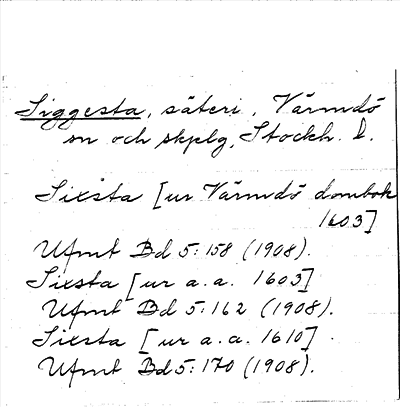 Siggesta, säteri, Värmdö
sn och skplg, Stockh. l.
Sixsta [ur Värmdö dombok
1603]
Ufmt Bd 5:158 (1908).
Sixsta [ur a.a. 1603]
Ufmt Bd 5:162 (1908).
Sixsta [ur a.a. 1610]
Ufmt Bd 5:170 (1908).